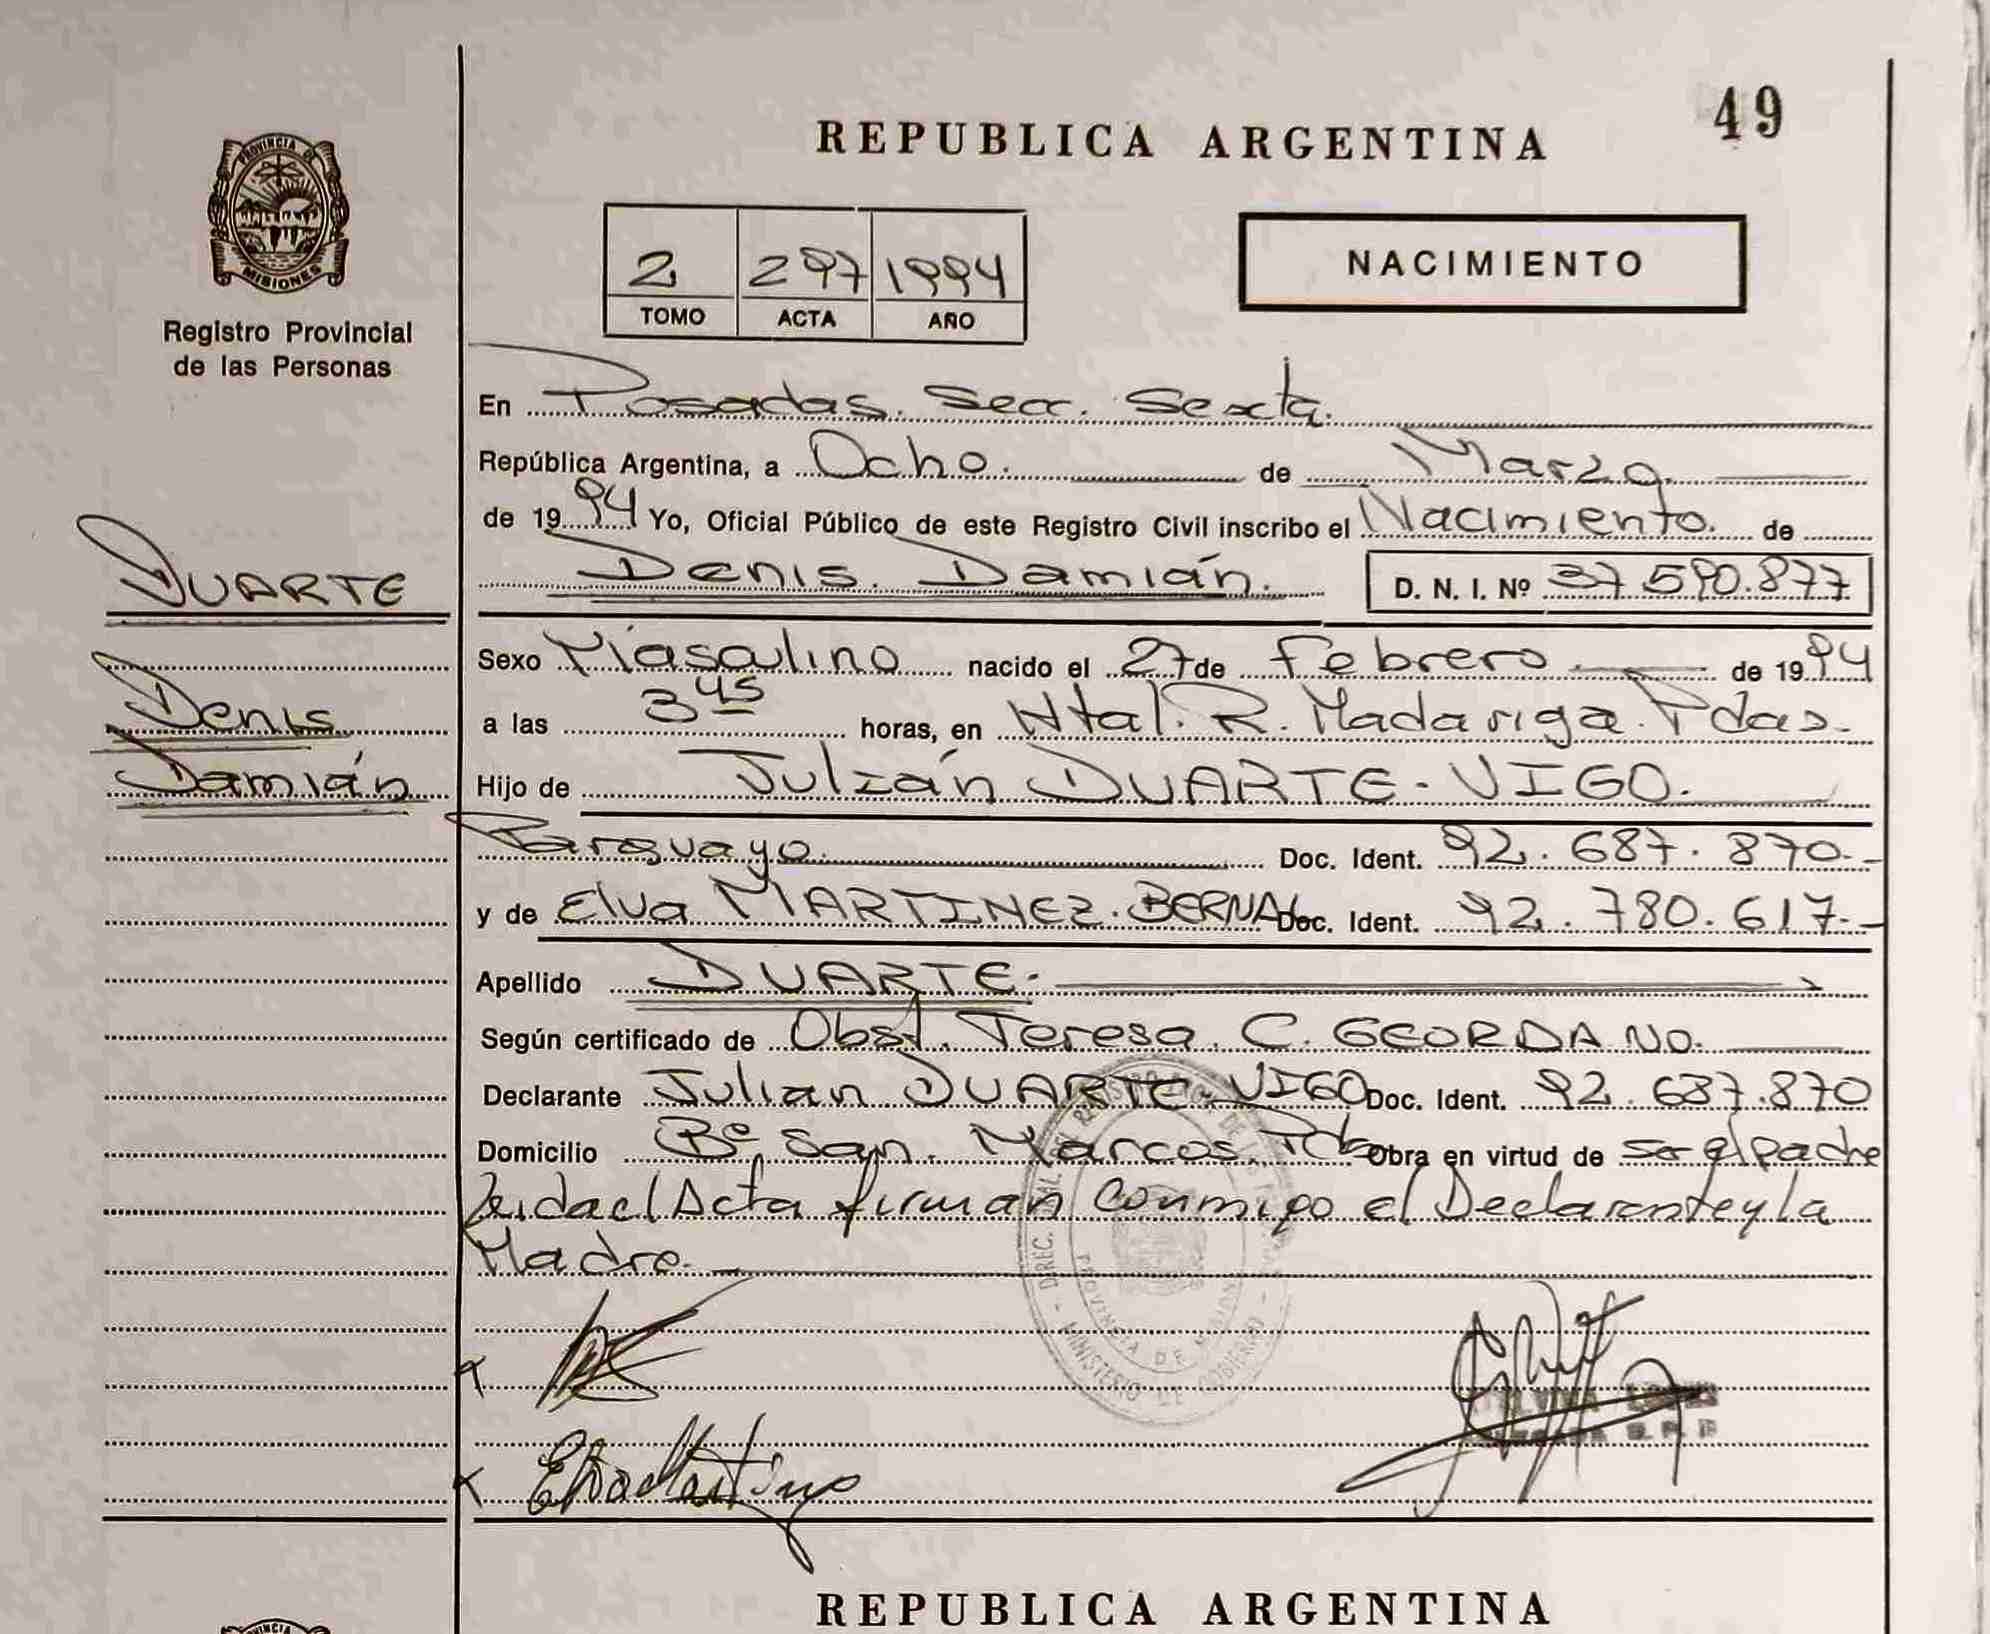 49
REPUBLICA ARGENTINA
PROVINCIA DE
MISIONES
Registro Provincial
de las Personas
2 297 1994
TOMO ACTA AÑO
NACIMIENTO
En Posadas. Secc. Sexta.
República Argentina, a Ocho. de Marzo.
de 1994 Yo, Oficial Público de este Registro Civil inscribo el Nacimiento. de
DUARTE
Denis. Damián. D. N. I. Nº 37.590.877
Sexo Masculino nacido el 27 de Febrero de 1994
Denis
a las 3 45 horas, en Htal. R. Madariga. Pdas.
Damián
Hijo de Julián DUARTE - VIGO.
Paraguayo. Doc. Ident. 92.687.870.-
y de Elva MARTINEZ. BERNAL Doc. Ident. 92.780.617.-
Apellido DUARTE.
Según certificado de Obst. Teresa. C. GEORDANO.
Declarante Julian DUARTE VIGO Doc. Ident. 92.687.870
Domicilio Bº San. Marcos. Obra en virtud de ser el padre
Leida el Acta firman conmigo el Declarante y la
Madre.
DIREC. GRAL DEL REGISTRO PROV. DE LAS
PROVINCIA DE MISIONES
MINISTERIO DE GOBIERNO
REPUBLICA ARGENTINA